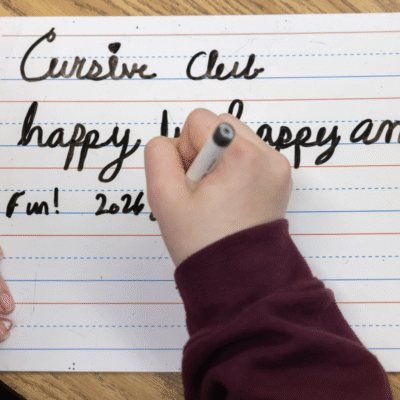 Cursive Club
happy happy an
Fun! 2026